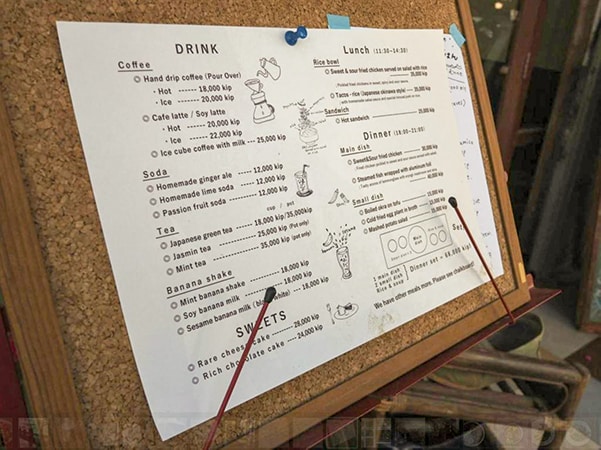 DRINK
Coffee
Hand drip coffee (Pour Over)
· Hot ------ 18,000 kip
· Ice ------ 20,000 kip
Cafe latte / Soy latte
· Hot ------ 20,000 kip
· Ice ------ 22,000 kip
Ice cube coffee with milk -- 25,000 kip
Soda
Homemade ginger ale ---- 12,000 kip
Homemade lime soda ---- 12,000 kip
Passion fruit soda ---- 12,000 kip
Tea
cup / pot
Japanese green tea ---- 18,000 kip/35,000kip
Jasmin tea ---- 25,000 kip (Pot only)
Mint tea ---- 35,000 kip (pot only)
Banana shake
Mint banana shake ---- 18,000 kip
Soy banana milk ---- 18,000 kip
Sesame banana milk - 18,000 kip
SWEETS
Rare cheese cake ---- 28,000 kip
Rich chocolate cake ---- 24,000 kip
Lunch (11:30-14:30)
Rice bowl
Sweet & sour fried chicken served on salad with rice
35,000 kip
Tacos - rice (Japanese okinawa style) ---- 35,000 kip
Sandwich
Hot sandwich ---- 25,000 kip
Dinner (18:00-21:00)
Main dish
Sweet&Sour fried chicken ---- 30,000 kip
Steamed fish wrapped with aluminum foil
40,000 kip
Small dish
Boiled okra on tofu ---- 15,000 kip
Cold fried egg plant in broth ---- 10,000 kip
Mashed potato salad ---- 20,000 kip
Main dish
Set
1 main dish
2 small dish
Rice & soup
Dinner set = 68,000 kip!
We have other meals more. Please see chalkboard!